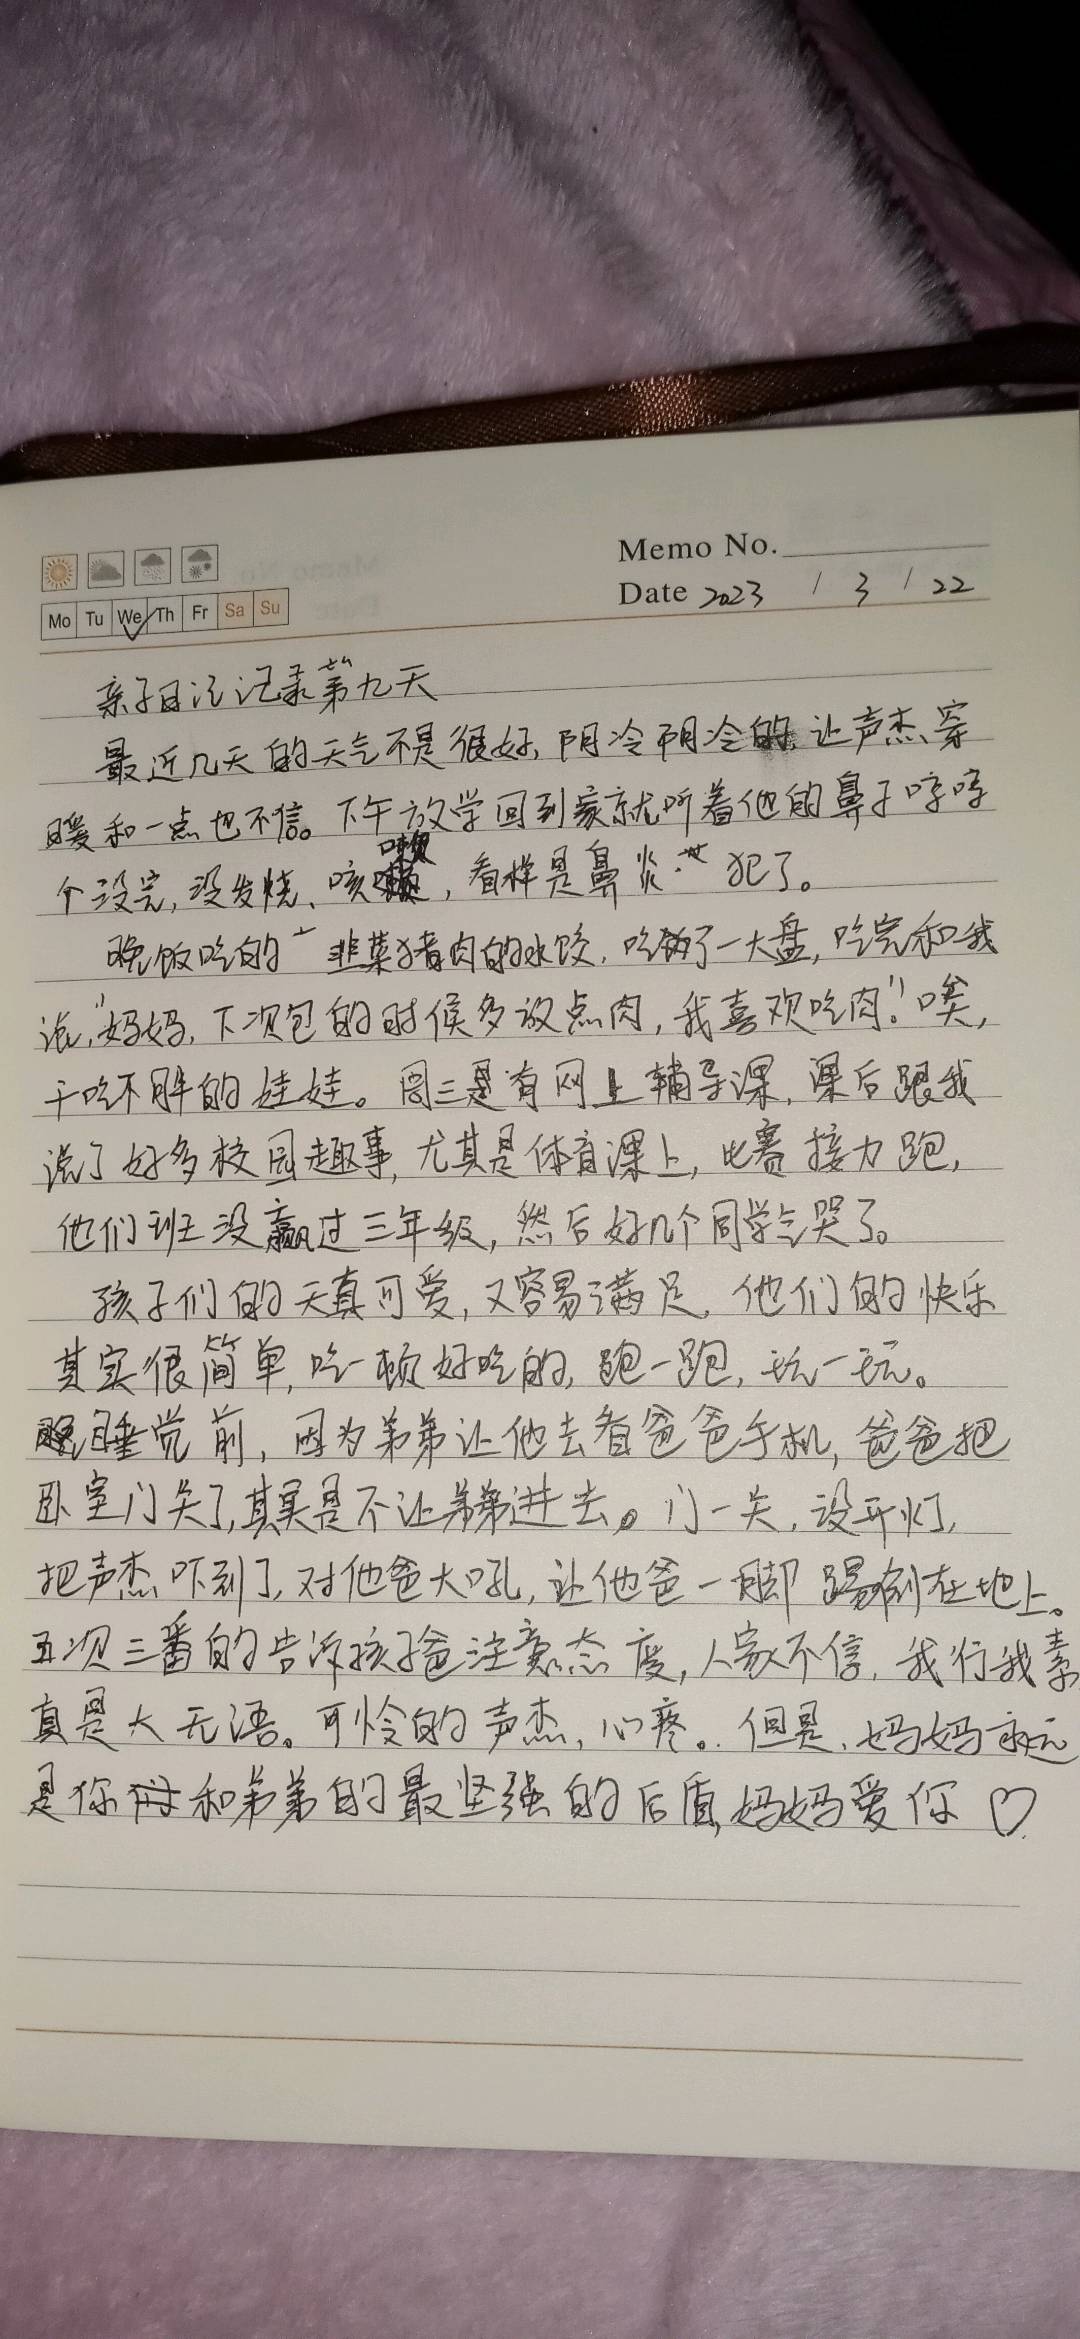 Memo No.
Date 2023 / 3 / 22
Mo Tu We Th Fr Sa Su
亲子日记记录第九天
最近几天的天气不是很好,阴冷阴冷的,让声杰穿
暖和一点也不信。下午放学回到家就听着他的鼻子哼哼
个没完,没发烧、咳嗽,看样是鼻炎又犯了。
晚饭吃的韭菜猪肉的水饺,吃了一大盘,吃完和我
说,"妈妈,下次包的时候多放点肉,我喜欢吃肉!"唉,
干吃不胖的娃娃。周三是有网上辅导课,课后跟我
说了好多校园趣事,尤其是体育课上,比赛接力跑,
他们班没赢过三年级,然后好几个同学气哭了。
孩子们的天真可爱,又容易满足,他们的快乐
其实很简单,吃一顿好吃的,跑一跑,玩一玩。
睡觉前,因为弟弟让他去看爸爸手机,爸爸把
卧室门关了,其实是不让弟弟进去。门一关,没开灯,
把声杰吓到了,对他爸大吼,让他爸一脚踢倒在地上。
五次三番的告诉孩子爸注意态度,人家不信,我行我素
真是大无语。可怜的声杰,心疼。但是,妈妈永远
是你和弟弟的最坚强的后盾,妈妈爱你♡